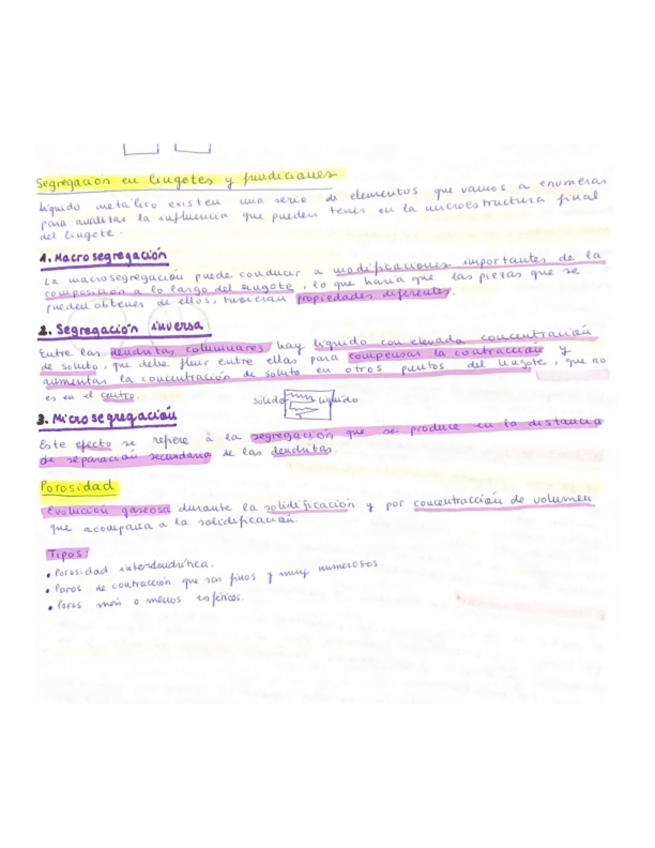 Segregación en lingotes y fundiciones
líquido metálico existen una serie de elementos que vamos a enumerar
para analizar la influencia que pueden tener en la microestructura final
del lingote.
1. Macrosegregación
La macrosegregación puede conducir a modificaciones importantes de la
composición a lo largo del lingote, lo que haría que las piezas que se
pueden obtener de ellos, tuvieran propiedades diferentes.
2. Segregación inversa
Entre las dendritas columnares hay líquido con elevada concentración
de soluto, que debe fluir entre ellas para compensar la contracción y
aumentar la concentración de soluto en otros puntos del lingote, que no
es en el centro.
sólido líquido
3. Microsegregación
Este efecto se refiere a la segregación que se produce en la distancia
de separación secundaria de las dendritas.
Porosidad
Evolución gaseosa durante la solidificación y por concentracción de volumen
que acompaña a la solidificación.
Tipos:
• Porosidad interdendrítica.
• Poros de contracción que son finos y muy numerosos.
• Poros más o menos esféricos.